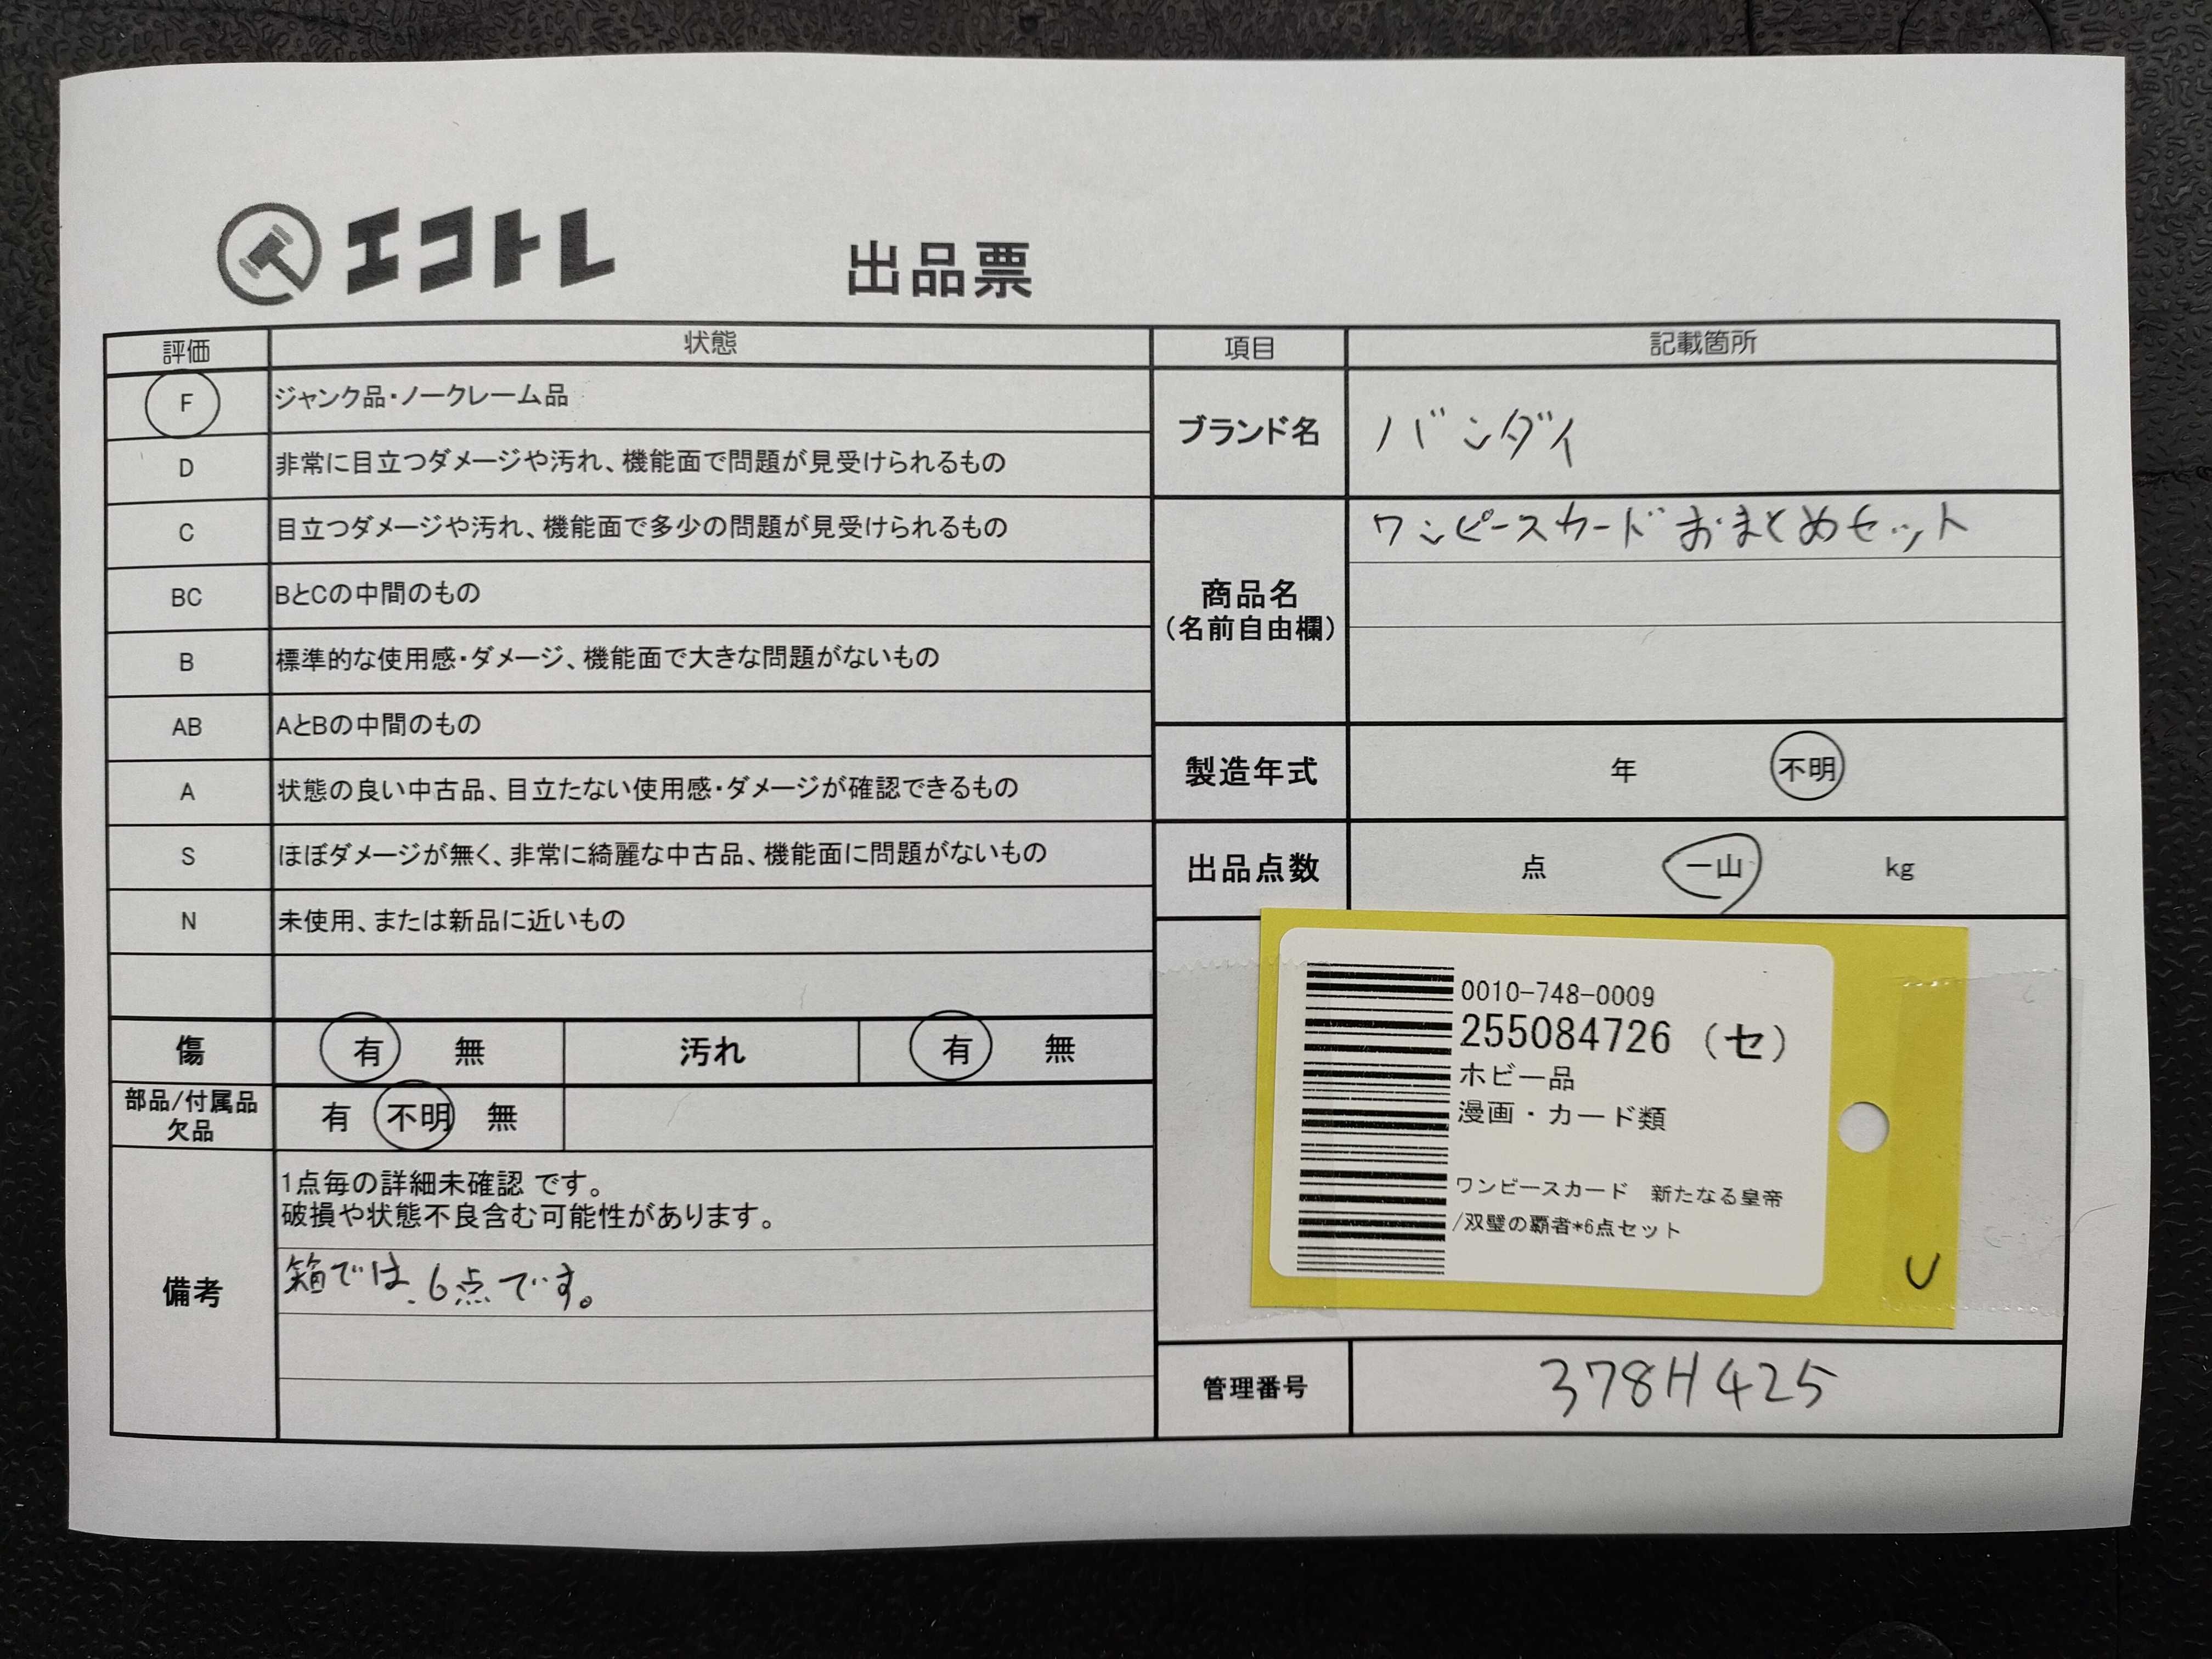 エコトレ
出品票
評価 状態
F ジャンク品・ノークレーム品
D 非常に目立つダメージや汚れ、機能面で問題が見受けられるもの
C 目立つダメージや汚れ、機能面で多少の問題が見受けられるもの
BC BとCの中間のもの
B 標準的な使用感・ダメージ、機能面で大きな問題がないもの
AB AとBの中間のもの
A 状態の良い中古品、目立たない使用感・ダメージが確認できるもの
S ほぼダメージが無く、非常に綺麗な中古品、機能面に問題がないもの
N 未使用、または新品に近いもの
傷 有 無 汚れ 有 無
部品/付属品
欠品
有 不明 無
備考
1点毎の詳細未確認 です。
破損や状態不良含む可能性があります。
箱では、6点です。
項目 記載箇所
ブランド名 バンダイ
商品名
(名前自由欄)
ワンピースカードおまとめセット
製造年式 年 不明
出品点数 点 一山 kg
0010-748-0009
255084726 (セ)
ホビー品
漫画・カード類
ワンピースカード 新たなる皇帝
/双璧の覇者*6点セット
U
管理番号 378H425